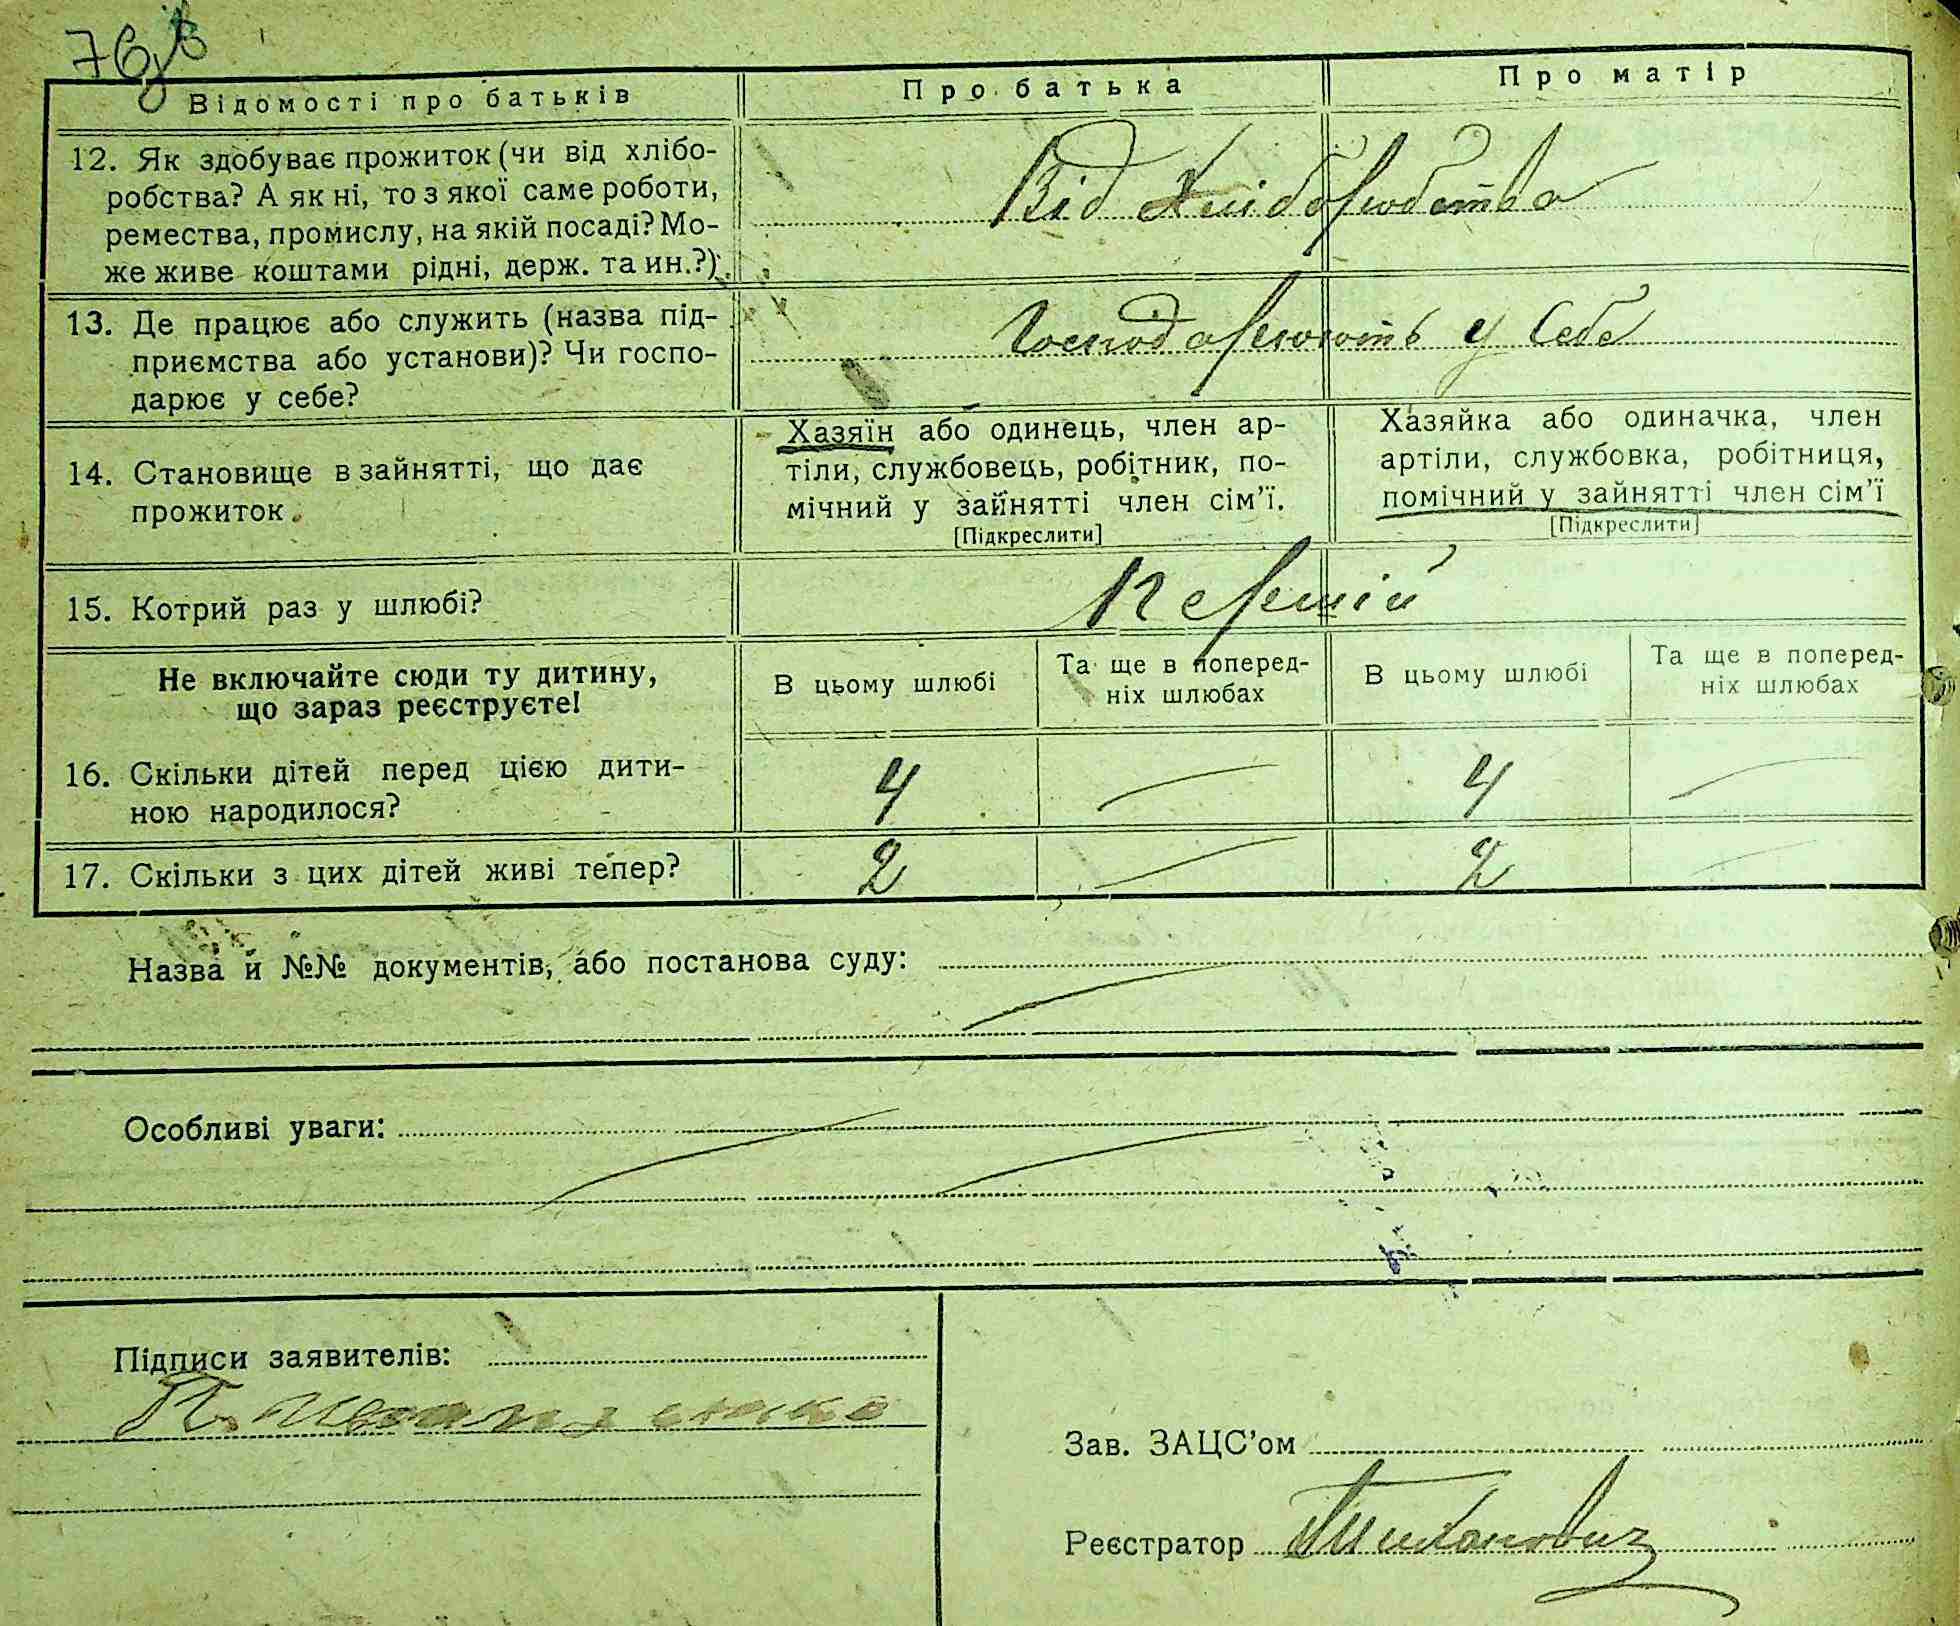 76
Відомості про батьків
Про батька
Про матір
12. Як здобуває прожиток (чи від хлібо-
робства? А як ні, то з якої саме роботи,
ремества, промислу, на якій посаді? Мо-
же живе коштами рідні, держ. та ин.?).
Від Хліборобства
13. Де працює або служить (назва під-
приємства або установи)? Чи госпо-
дарює у себе?
Господарюють у Себе
14. Становище в зайнятті, що дає
прожиток.
Хазяїн або одинець, член ар-
тіли, службовець, робітник, по-
мічний у зайнятті член сім'ї.
[Підкреслити]
Хазяйка або одиначка, член
артіли, службовка, робітниця,
помічний у зайнятті член сім'ї
[Підкреслити]
15. Котрий раз у шлюбі?
Перший
Не включайте сюди ту дитину,
що зараз реєструєте!
В цьому шлюбі
Та ще в поперед-
ніх шлюбах
В цьому шлюбі
Та ще в поперед-
ніх шлюбах
16. Скільки дітей перед цією дити-
ною народилося?
4 4
17. Скільки з цих дітей живі тепер?
2 2
Назва й №№ документів, або постанова суду:
Особливі уваги:
Підписи заявителів:
Зав. ЗАЦС'ом
Реєстратор